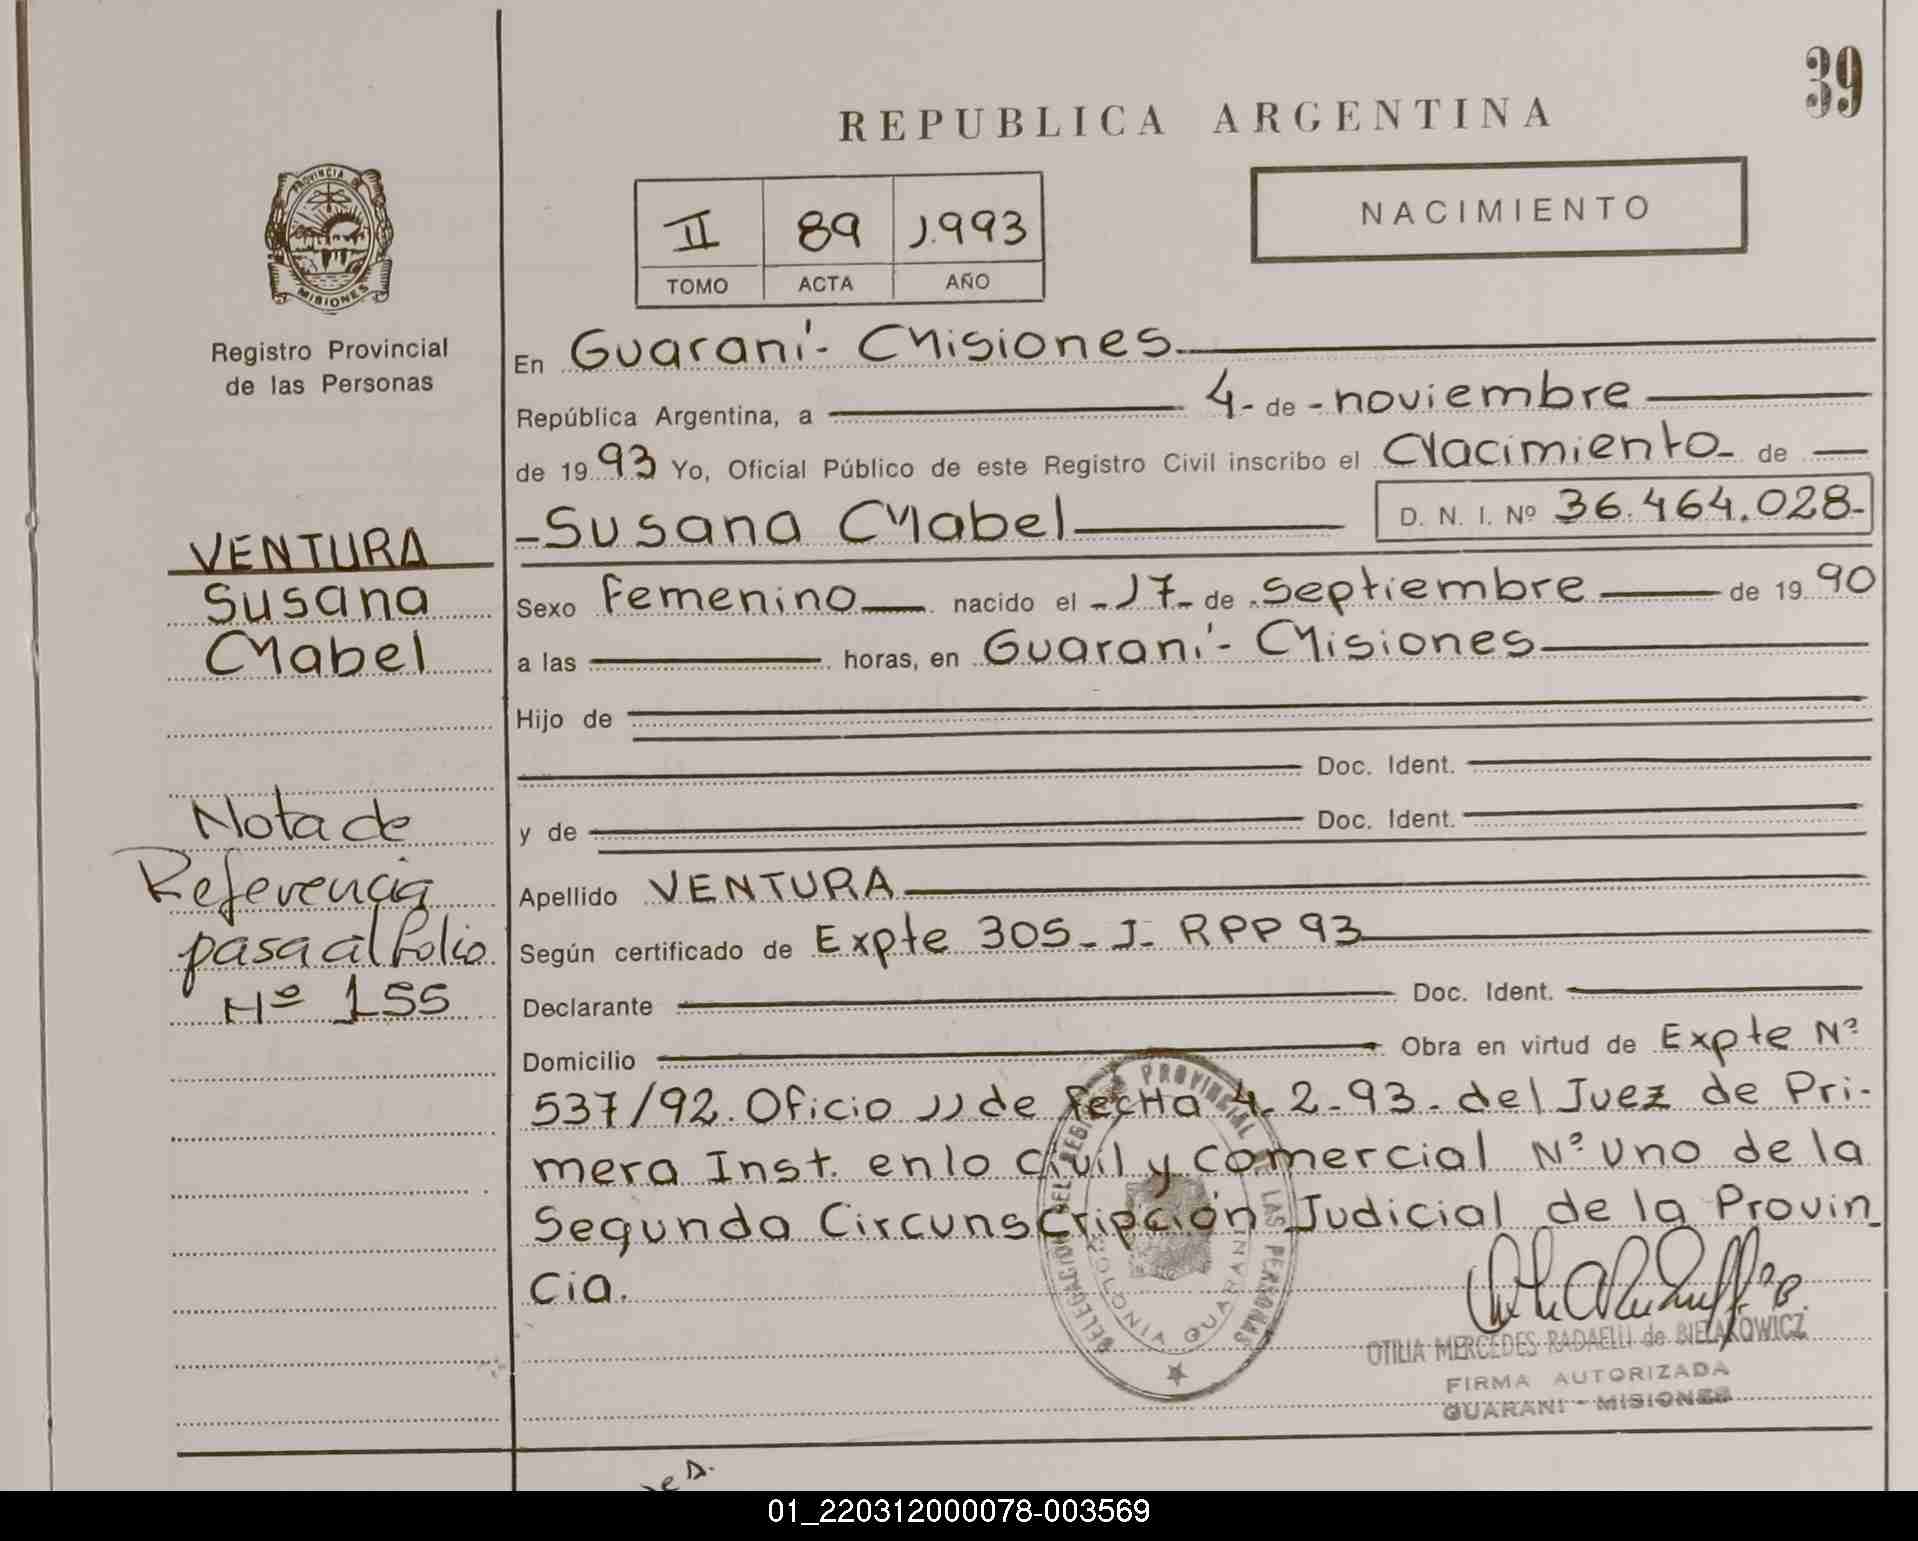 39
REPUBLICA ARGENTINA
NACIMIENTO
II 89 1.993
TOMO ACTA AÑO
PROVINCIA DE
MISIONES
Registro Provincial
de las Personas
VENTURA
Susana
Mabel
Nota de
Referencia
pasa al folio
Nº 155
En Guaraní - Misiones
República Argentina, a 4 - de - noviembre
de 19 93 Yo, Oficial Público de este Registro Civil inscribo el Nacimiento - de
- Susana Mabel D. N. I. Nº 36.464.028-
Sexo Femenino nacido el - 17 - de septiembre de 19 90
a las horas, en Guaraní - Misiones
Hijo de
Doc. Ident.
y de Doc. Ident.
Apellido VENTURA
Según certificado de Expte 305 - J - RPP 93
Declarante Doc. Ident.
Domicilio Obra en virtud de Expte Nº
537/92. Oficio 11 de fecHa 4-2-93- del Juez de Pri-
mera Inst. en lo civil y comercial Nº uno de la
Segunda Circunscripción Judicial de la Provin-
cia.
DELEGACION DEL REGISTRO PROVINCIAL DE LAS PERSONAS
COLONIA GUARANI
OTILIA MERCEDES RADAELLI de BIELAKOWICZ
FIRMA AUTORIZADA
GUARANI - MISIONES
01_220312000078-003569